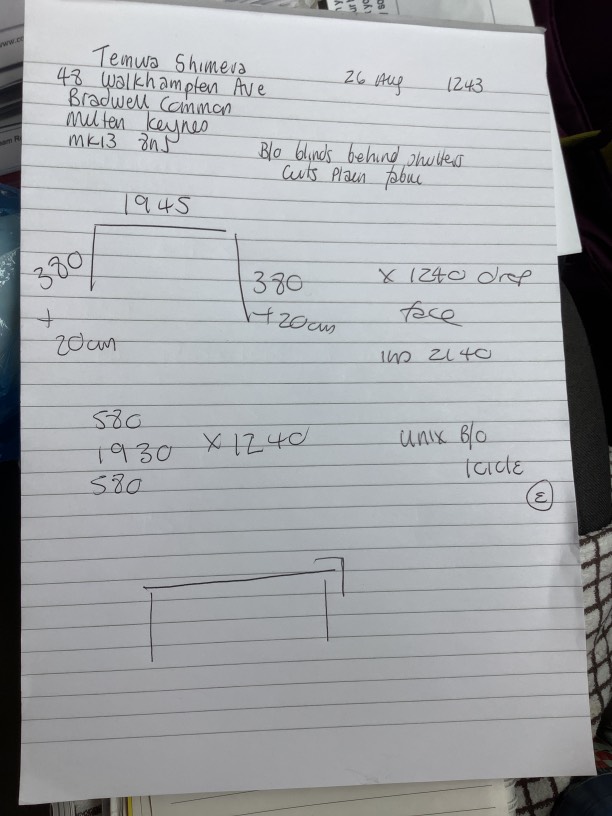 Temwa Shimera
48 Walkhampton Ave
Bradwell Common
Milton Keynes
MK13 8NJ
26 Aug 1243
B/o blinds behind shutters
Cuts Plain fabric
1945
380
+
20cm
380
+20cm
x 1240 drop
face
2140
580
1930 x 1240
580
unix B/o
Icicle
E